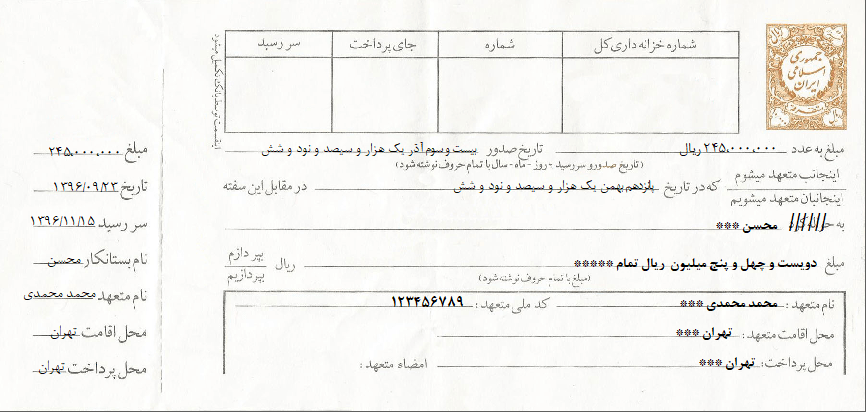 جمهوری
اسلامی
ایران
شماره خزانه داری کل
شماره
جای پرداخت
سر رسید
این قسمت توسط بانک تکمیل میشود
مبلغ به عدد ۲۴۵,۰۰۰,۰۰۰ ریال تاریخ صدور بیست و سوم آذر یک هزار و سیصد و نود و شش
(تاریخ صدور و سررسید - روز - ماه - سال با تمام حروف نوشته شود)
اینجانب متعهد میشوم
اینجانبان متعهد میشویم
که در تاریخ پانزدهم بهمن یک هزار و سیصد و نود و شش در مقابل این سفته
به محسن ***
مبلغ دویست و چهل و پنج میلیون ریال تمام ***** ریال
بپردازم
بپردازیم
(مبلغ با تمام حروف نوشته شود)
نام متعهد: محمد محمدی *** کد ملی متعهد: ۱۲۳۴۵۶۷۸۹
محل اقامت متعهد: تهران ***
محل پرداخت: تهران *** امضاء متعهد:
مبلغ ۲۴۵,۰۰۰,۰۰۰
تاریخ ۱۳۹۶/۰۹/۲۳
سر رسید ۱۳۹۶/۱۱/۱۵
نام بستانکار محسن
نام متعهد محمد محمدی
محل اقامت تهران
محل پرداخت تهران